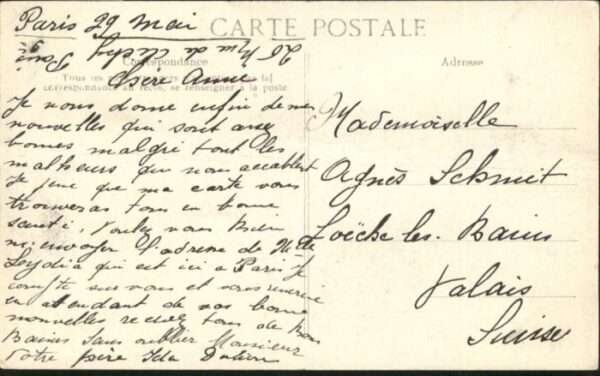 Paris 29 Mai
CARTE POSTALE
26 Rue de Clichy Paris
Correspondance
Adresse
Tous les
correspondance au recto, se renseigner à la poste
Chère Anne
Je vous donne enfin de mes
nouvelles qui sont assez
bonnes malgré tout les
malheurs qui nous accablent
Je pense que ma carte vous
trouveras tous en bonne
santé, Voulez vous bien
m'envoyer l'adresse de Mlle
Leydia qui est ici a Paris Je
compte sur vous et vous remercie
en attendant de vos bonne
nouvelles recevez tous de bons
Baisers Sans oublier Monsieur
Votre père Ida
Mademoiselle
Agnès Schmit
Loëche les. Bains
Valais
Suisse